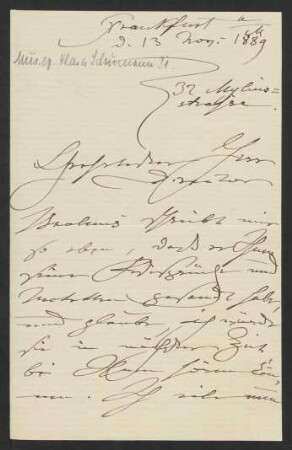 Frankfurt a/M
d. 13 Nov. 1889
Mus. ep. Klara Schumann 31
32 Mylius=
strasse.
Geehrtester Herr
Director
Brahms schreibt mir
so eben, dass er Ihnen
seine Festsprüche und
Motetten gesandt habe,
und glaube, ich würde
sie in nächster Zeit
bei Ihnen hören kön=
nen. Ich nun